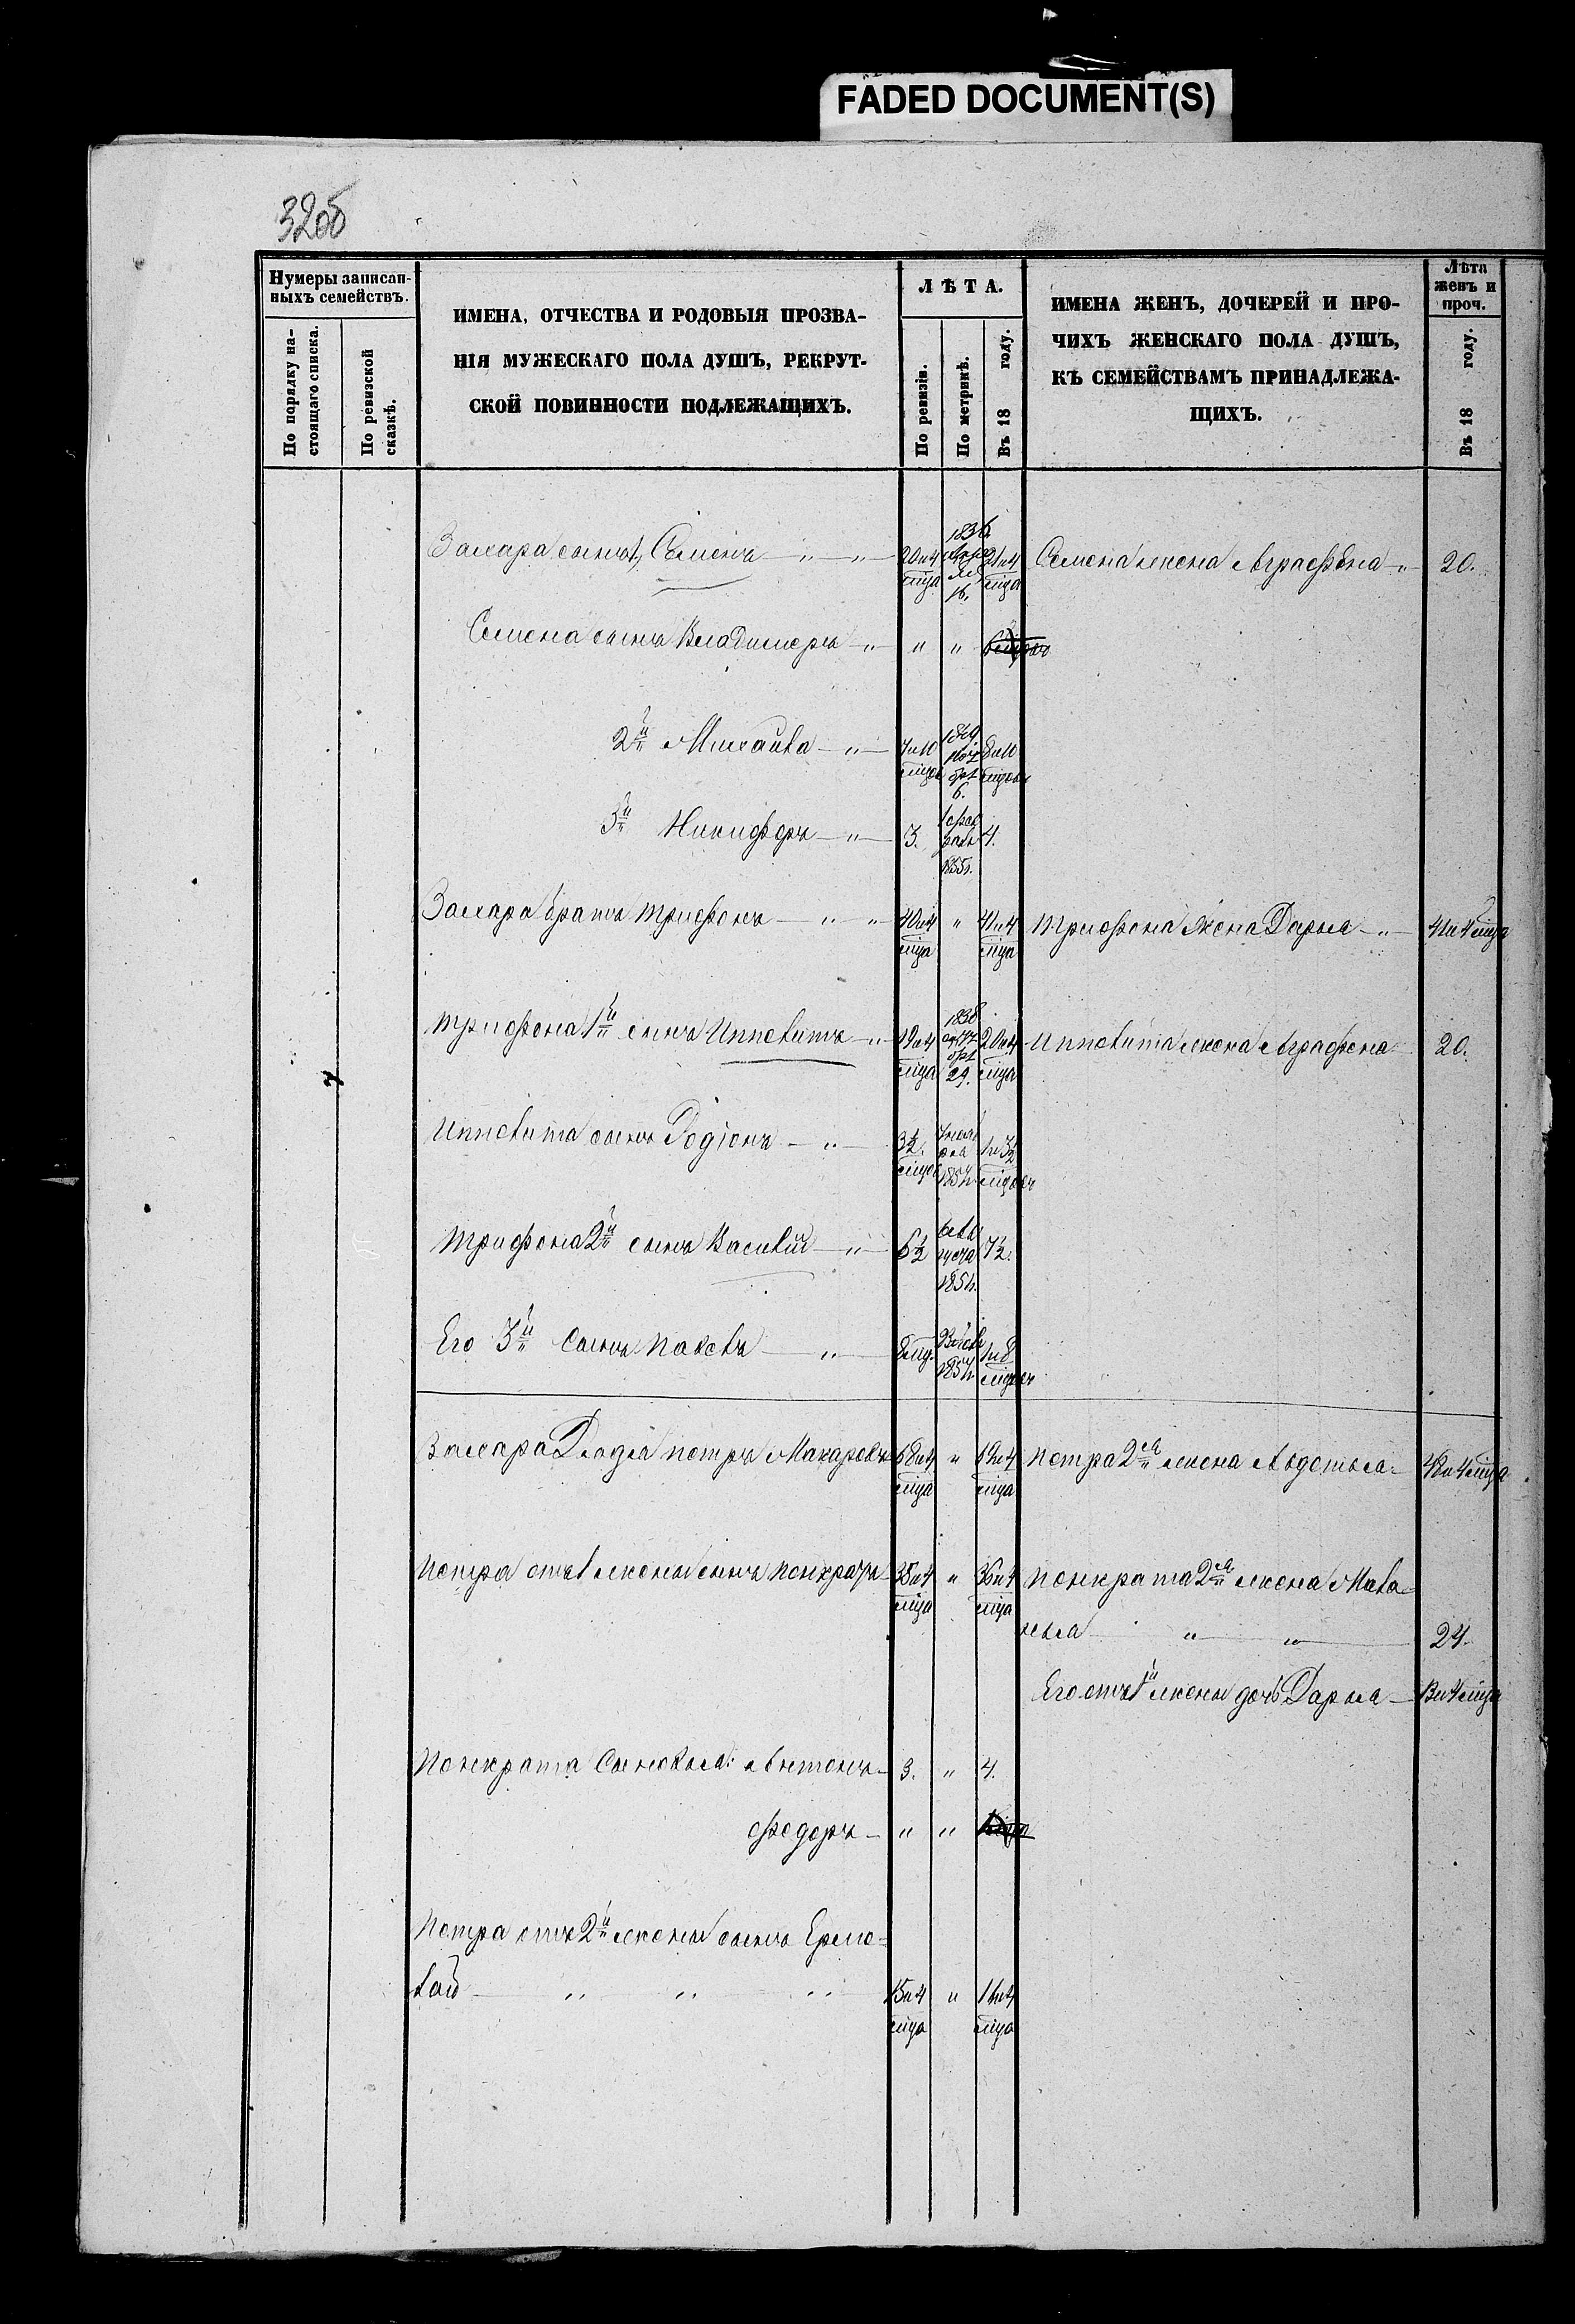 FADED DOCUMENT(S)
32об
Нумеры записан-
ныхъ семействъ.
По порядку на-
стоящаго списка.
По ревизской
сказкѣ.
ИМЕНА, ОТЧЕСТВА И РОДОВЫЯ ПРОЗВА-
НІЯ МУЖЕСКАГО ПОЛА ДУШЪ, РЕКРУТ-
СКОЙ ПОВИННОСТИ ПОДЛЕЖАЩИХЪ.
ЛѢТА.
По ревизіи.
По метрикѣ.
Въ 18 году.
ИМЕНА ЖЕНЪ, ДОЧЕРЕЙ И ПРО-
ЧИХЪ ЖЕНСКАГО ПОЛА ДУШЪ,
КЪ СЕМЕЙСТВАМЪ ПРИНАДЛЕЖА-
ЩИХЪ.
Лѣта
женъ и
проч.
Въ 18 году.
Захара сынъ 1, Семенъ 20 и 4 мѣца 1836 16. 21 и 4 мѣца Семена жена Аграфѣна 20.
Семена сынъ Владимеръ " "
2й Михайла 7 и 10 мѣцовъ 6. 8 и 10 мѣцовъ
3й Никифоръ 3. 1855г. 4.
Захара братъ Трифонъ 40 и 4 мѣца " 41 и 4 мѣца Трифона жена Дарья 41 и 4 мѣца
Трифона 1й сынъ Ипполитъ 19 и 4 мѣца 1838 29. 20 и 4 мѣца Ипполита жена Аграфена 20.
Ипполита сынъ Родіонъ 3½ мѣцов 1 и 3½ мѣцовъ
Трифона 2й сынъ Василій 6½ 7½.
Его 3й сынъ Павелъ 8 мц. 1 и 8 мѣцовъ
Захара Дядя Петръ Макаровъ 68 и 4 мѣца " 69 и 4 мѣца Петра 2я жена Авдотья 48 и 4 мѣца
Петра отъ 1 жены сынъ Понкратъ 35 и 4 мѣца " 36 и 4 мѣца Понкрата 2я жена Мала-
нья " " 24.
Его отъ 1й жены дочь Дарья 13 и 4 мѣца
Понкрата Сыновья: Антонъ 3. " 4.
Федоръ " "
Петра отъ 2й жены сынъ Ермо-
лай " " " 15 и 4 мѣца " 16 и 4 мѣца